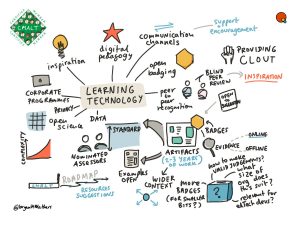 CMALT
inspiration
digital pedagogy
communication channels
support + encouragement
PROVIDING CLOUT
INSPIRATION
open badging
BLIND PEER REVIEW
peer to peer recognition
LEARNING TECHNOLOGY
CORPORATE PROGRAMMES
open science
DATA
STANDARD
COMPLEXITY
NOMINATED ASSESSORS
ARTIFACTS
2-3 YEARS OF WORK
BADGES
EVIDENCE
ONLINE
OFFLINE
how to make VALID JUDGEMENTS?
what size of org does this suit?
relevant for ethics devs?
Examples open
WIDER CONTEXT
MORE BADGES (FOR SMALLER BITS?)
ROADMAP
CMALT
RESOURCES
SUGGESTIONS
@bryanMMathers